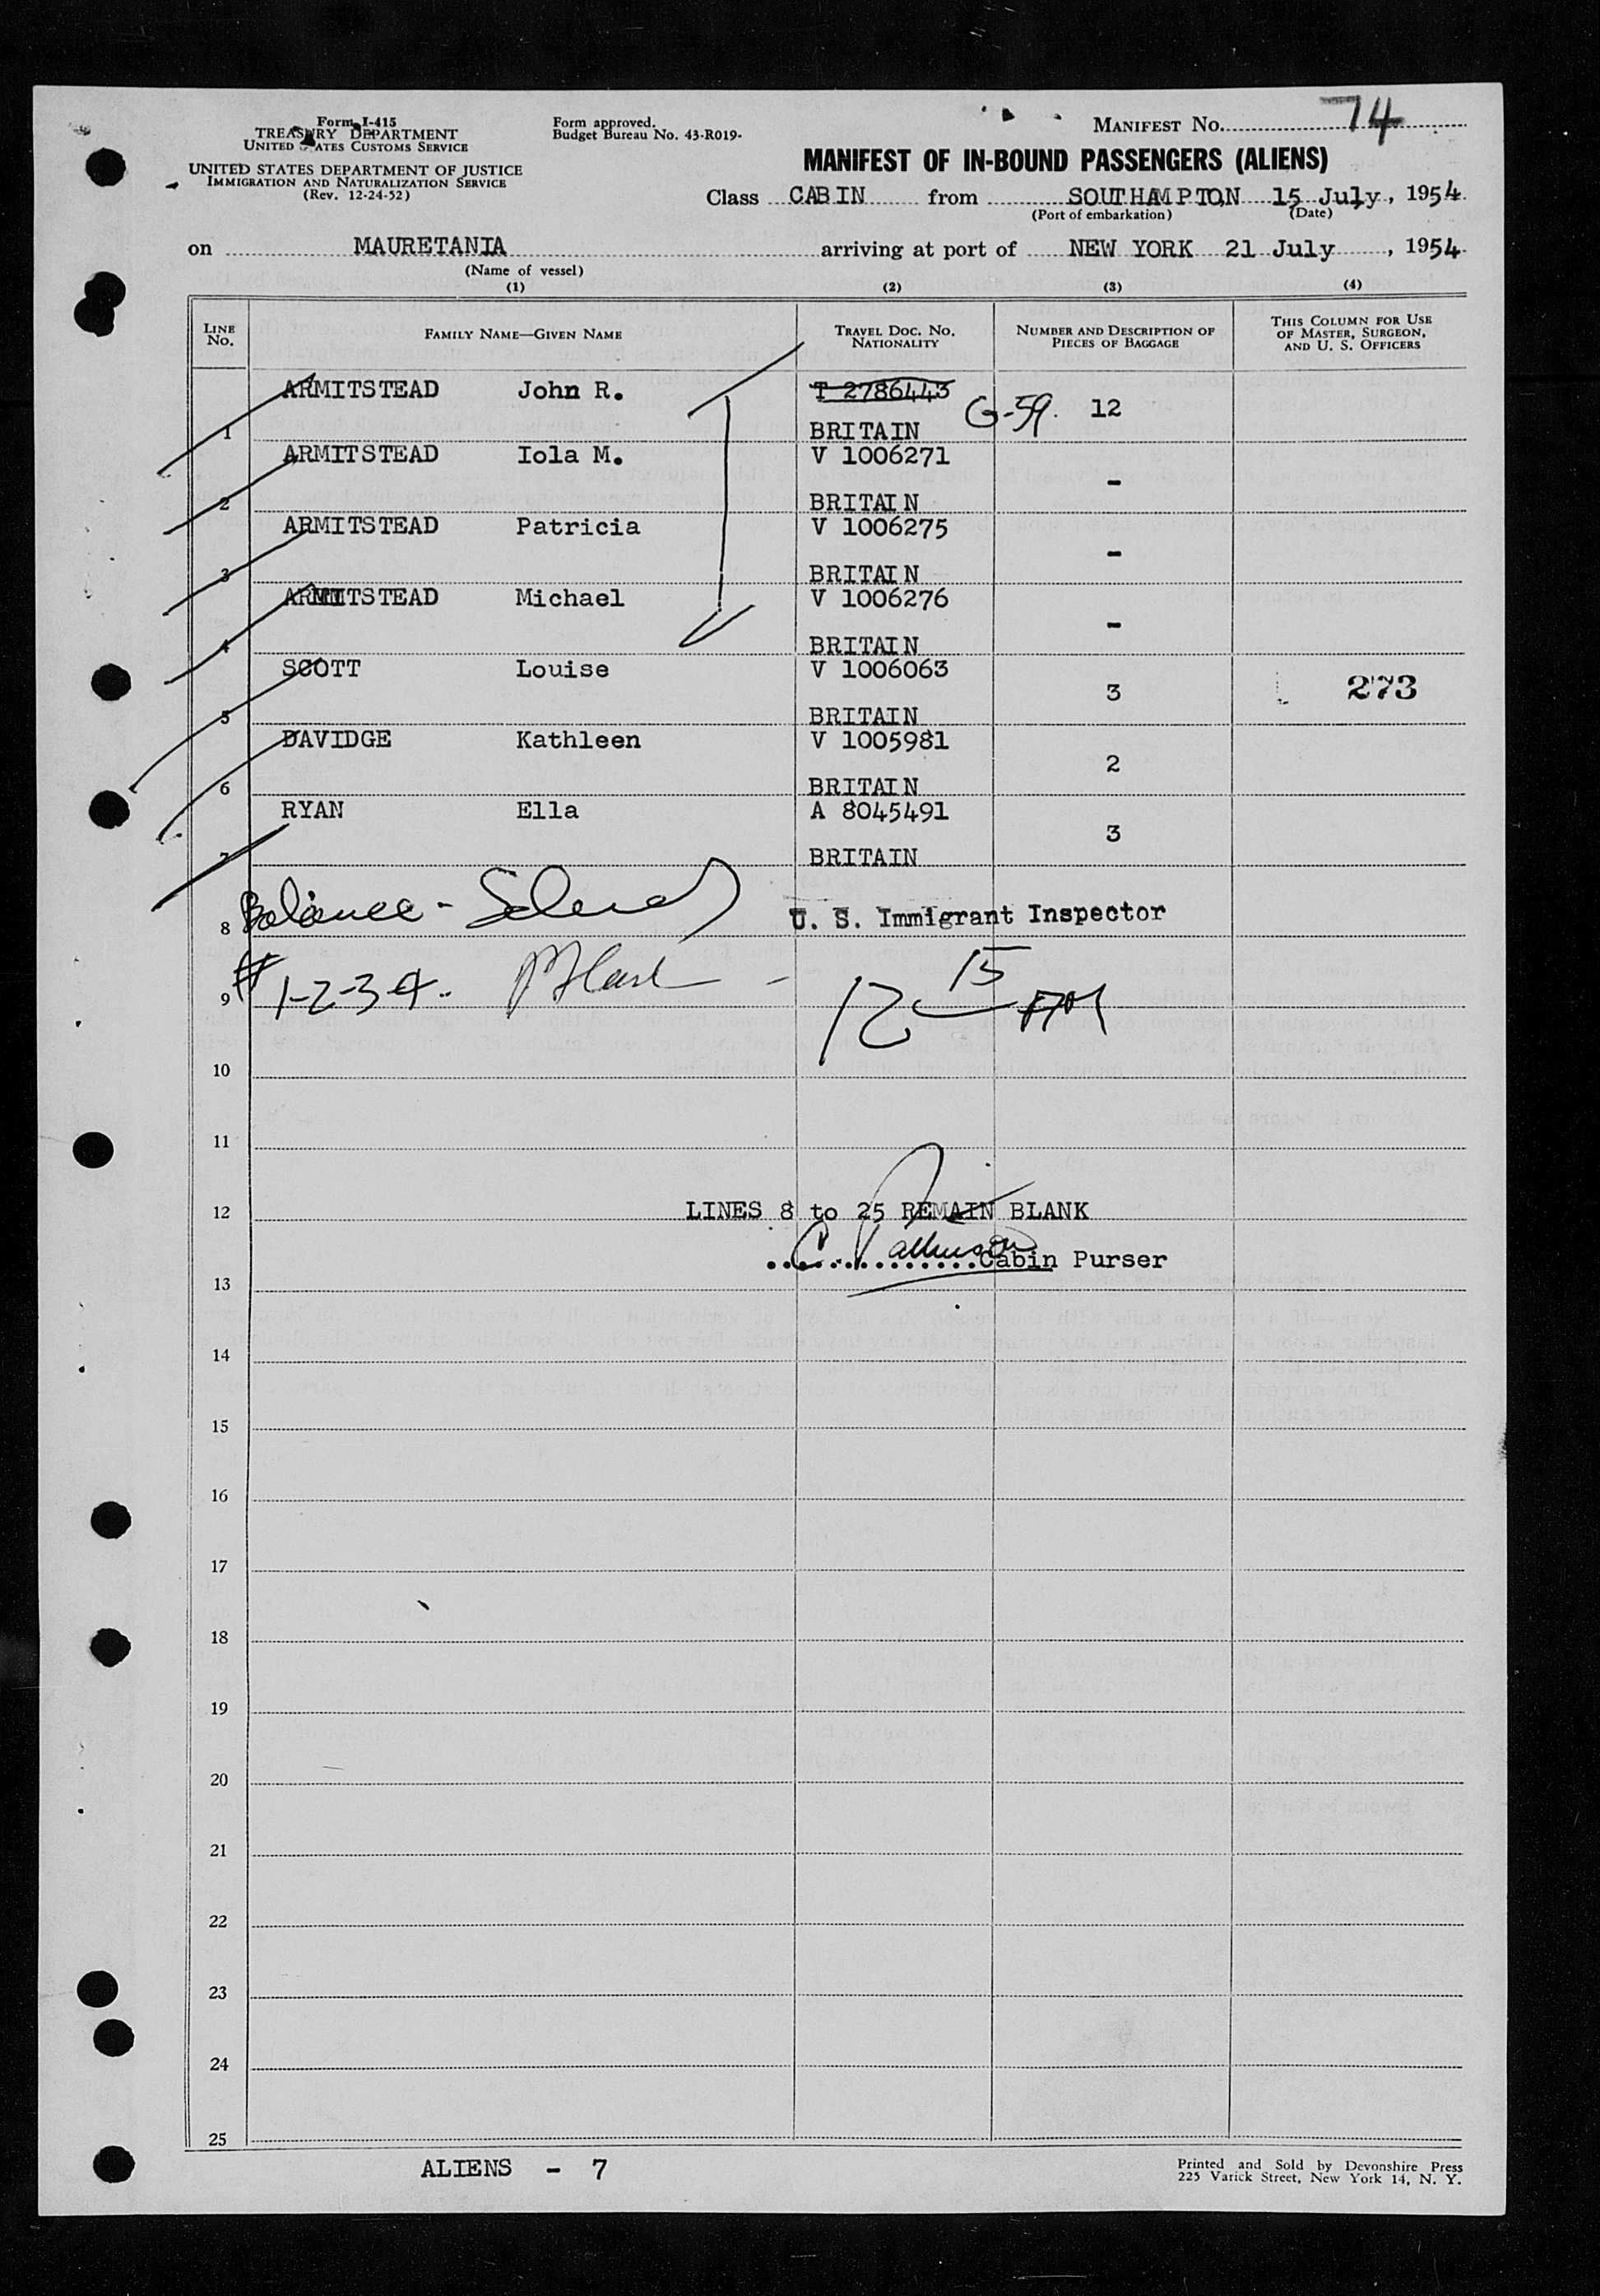 Form I-415
TREASURY DEPARTMENT
UNITED STATES CUSTOMS SERVICE
UNITED STATES DEPARTMENT OF JUSTICE
IMMIGRATION AND NATURALIZATION SERVICE
(Rev. 12-24-52)
Form approved.
Budget Bureau No. 43-R019-
MANIFEST NO. 74
MANIFEST OF IN-BOUND PASSENGERS (ALIENS)
Class CABIN from SOUTHAMPTON 15 July, 1954
(Port of embarkation) (Date)
on MAURETANIA arriving at port of NEW YORK 21 July, 1954
(Name of vessel)
(1) (2) (3) (4)
LINE No. FAMILY NAME—GIVEN NAME TRAVEL DOC. NO. NATIONALITY NUMBER AND DESCRIPTION OF PIECES OF BAGGAGE THIS COLUMN FOR USE OF MASTER, SURGEON, AND U. S. OFFICERS
ARMITSTEAD John R. T 2786443 G-59. 12
1 BRITAIN
ARMITSTEAD Iola M. V 1006271 -
2 BRITAIN
ARMITSTEAD Patricia V 1006275 -
3 BRITAIN
ARMITSTEAD Michael V 1006276 -
4 BRITAIN
SCOTT Louise V 1006063 3 273
5 BRITAIN
DAVIDGE Kathleen V 1005981 2
6 BRITAIN
RYAN Ella A 8045491 3
7 BRITAIN
8 Balance - U. S. Immigrant Inspector
9 # 1-2-3-4. - 12 15 AM
10
11
12 LINES 8 to 25 REMAIN BLANK
13 Cabin Purser
14
15
16
17
18
19
20
21
22
23
24
25
ALIENS - 7
Printed and Sold by Devonshire Press
225 Varick Street, New York 14, N. Y.